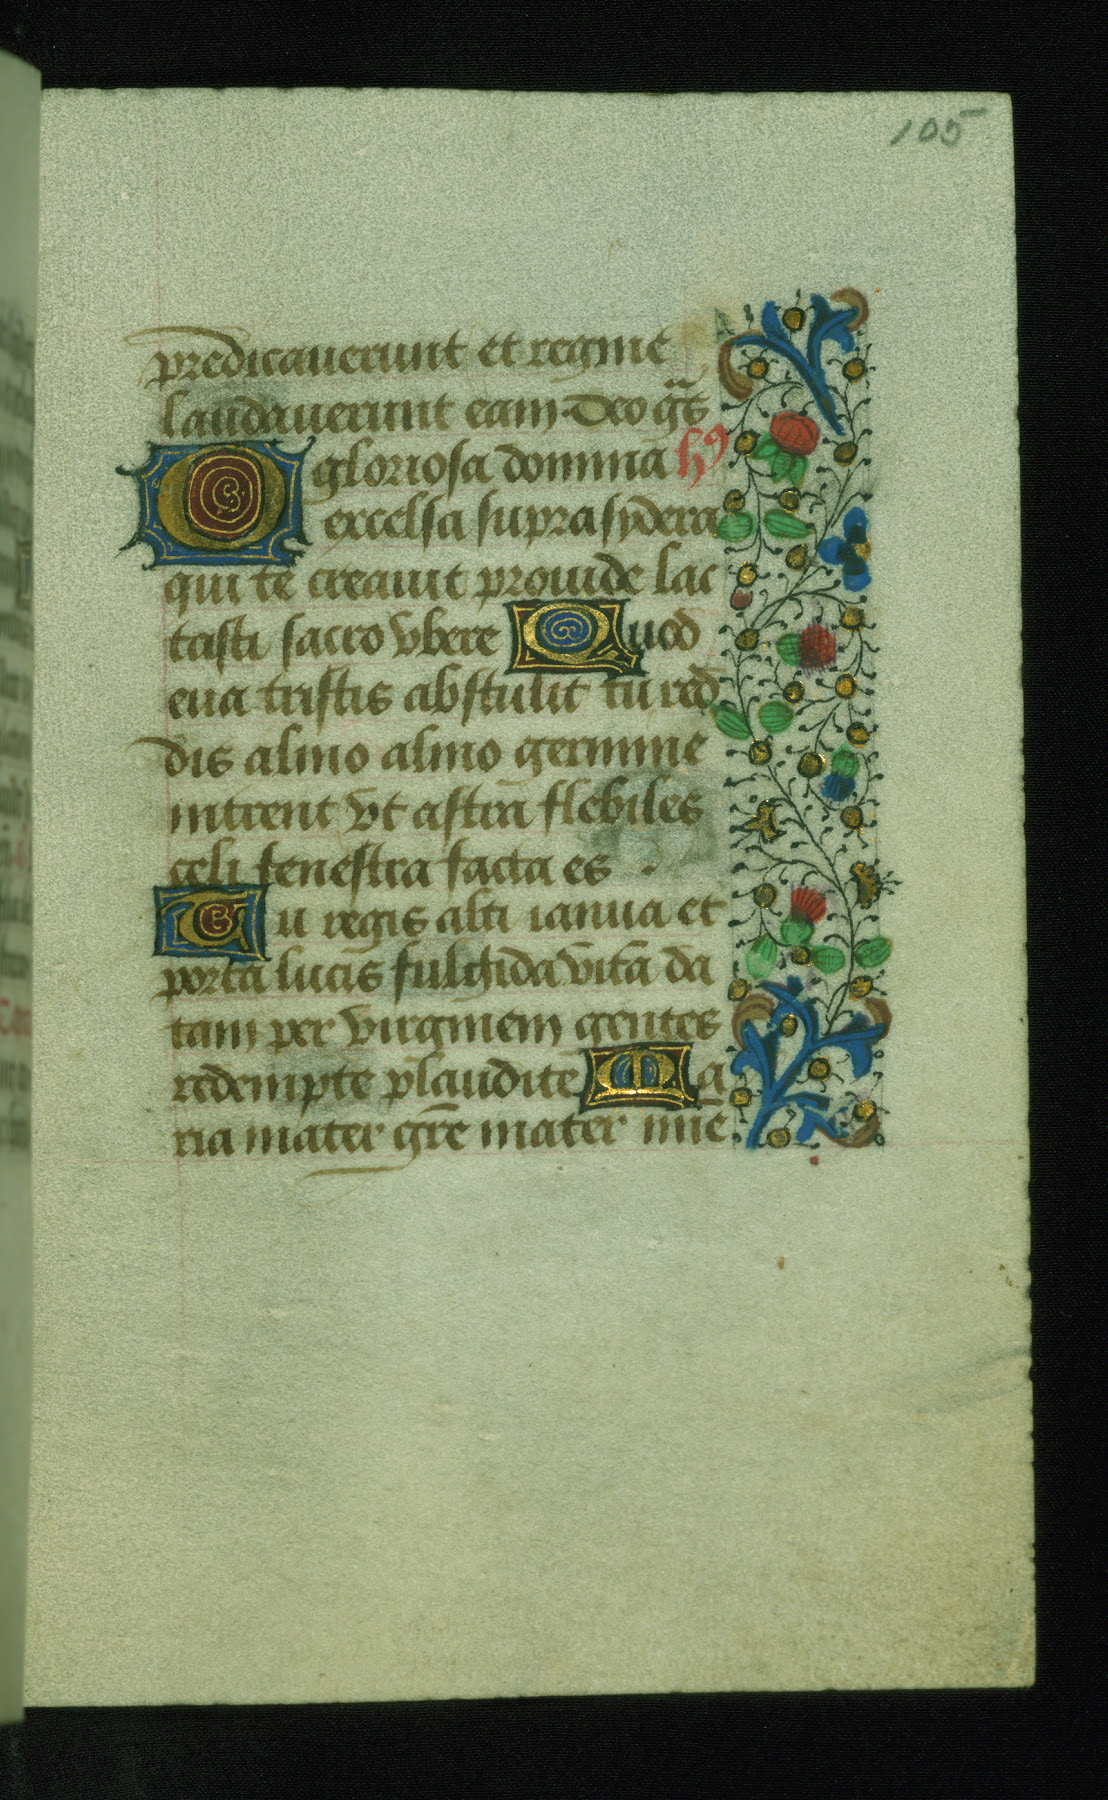 105
predicauerunt et regine
laudauerunt eam. Deo gr̄s
O gloriosa domina h9
excelsa supra sydera
qui te creauit prouide lac
tasti sacro vbere Quod
eua tristis abstulit tu red
dis almo almo germine
intrent vt astra flebiles
celi fenestra facta es .
Tu regis alti ianua et
porta lucis fulgida vitā da
tam per virginem gentes
redempte plaudite Ma
ria mater grē mater mie